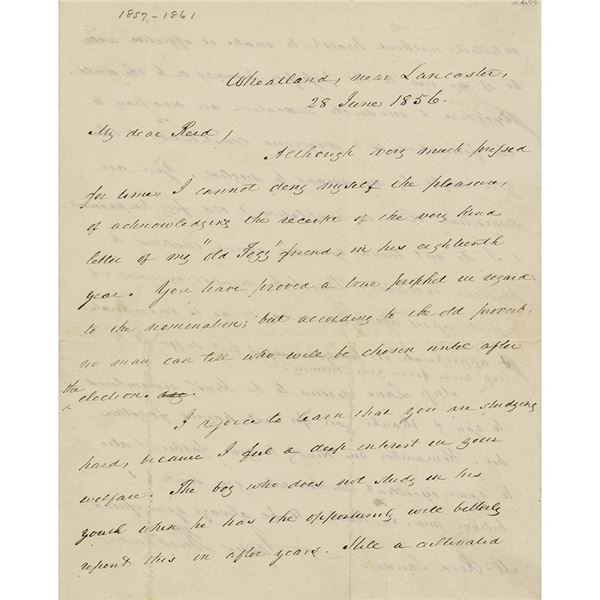 1857-1861
Wheatland, near Lancaster,
28 June 1856.
My dear Reed/
Although very much pressed
for time, I cannot deny myself the pleasure,
of acknowledging the receipt of the very kind
letter of my "old Fogy" friend, in his eighteenth
year. You have proved a true prophet in regard
to the nomination; but according to the old proverb,
no man can tell who will be chosen until after
the election.
I rejoice to learn that you are studying
hard, because I feel a deep interest in your
welfare. The boy who does not study in his
youth when he has the opportunity will bitterly
repent this in after years. While a cultivated